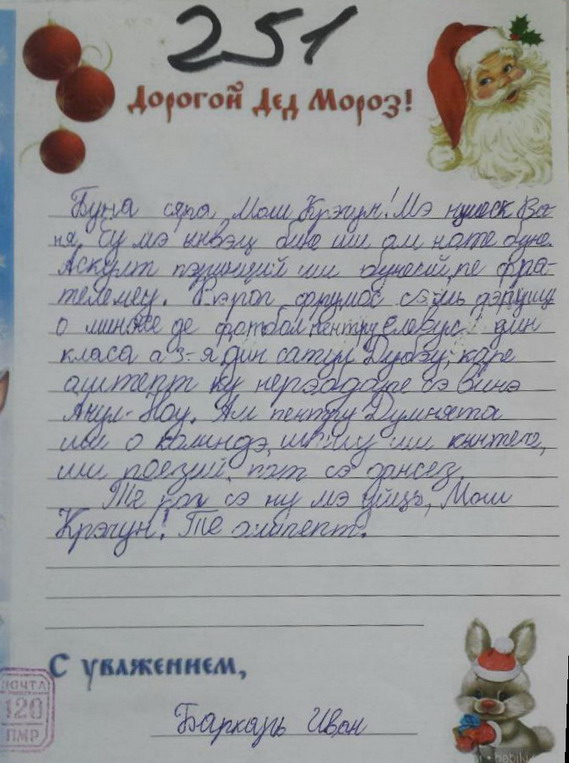 251
Дорогой Дед Мороз!
Буна сяра Мош Крэчун! Мэ нумеск Ва-
ня. Еу мэ ынвэц бине ши ам ноте буне.
Аскулт пэринций ши бунеий, пе фра-
телемеу. Те рог фрумос сэ-мь дэруешь
о минӂе де фотбал пентру елевул дин
класа а 3-я дин сатул Дубэу, каре
аштептт ку нерэбдаре сэ винэ
Анул-Ноу. Ам пентру Думнята
ши о колиндэ, ши ши кынтече,
ши поезий, пот сэ дансез
Те рог сэ ну мэ уйць, Мош
Крэчун! Те аштепт.
С уважением,
Баркарь Иван
ПОЧТА
120
ПМР